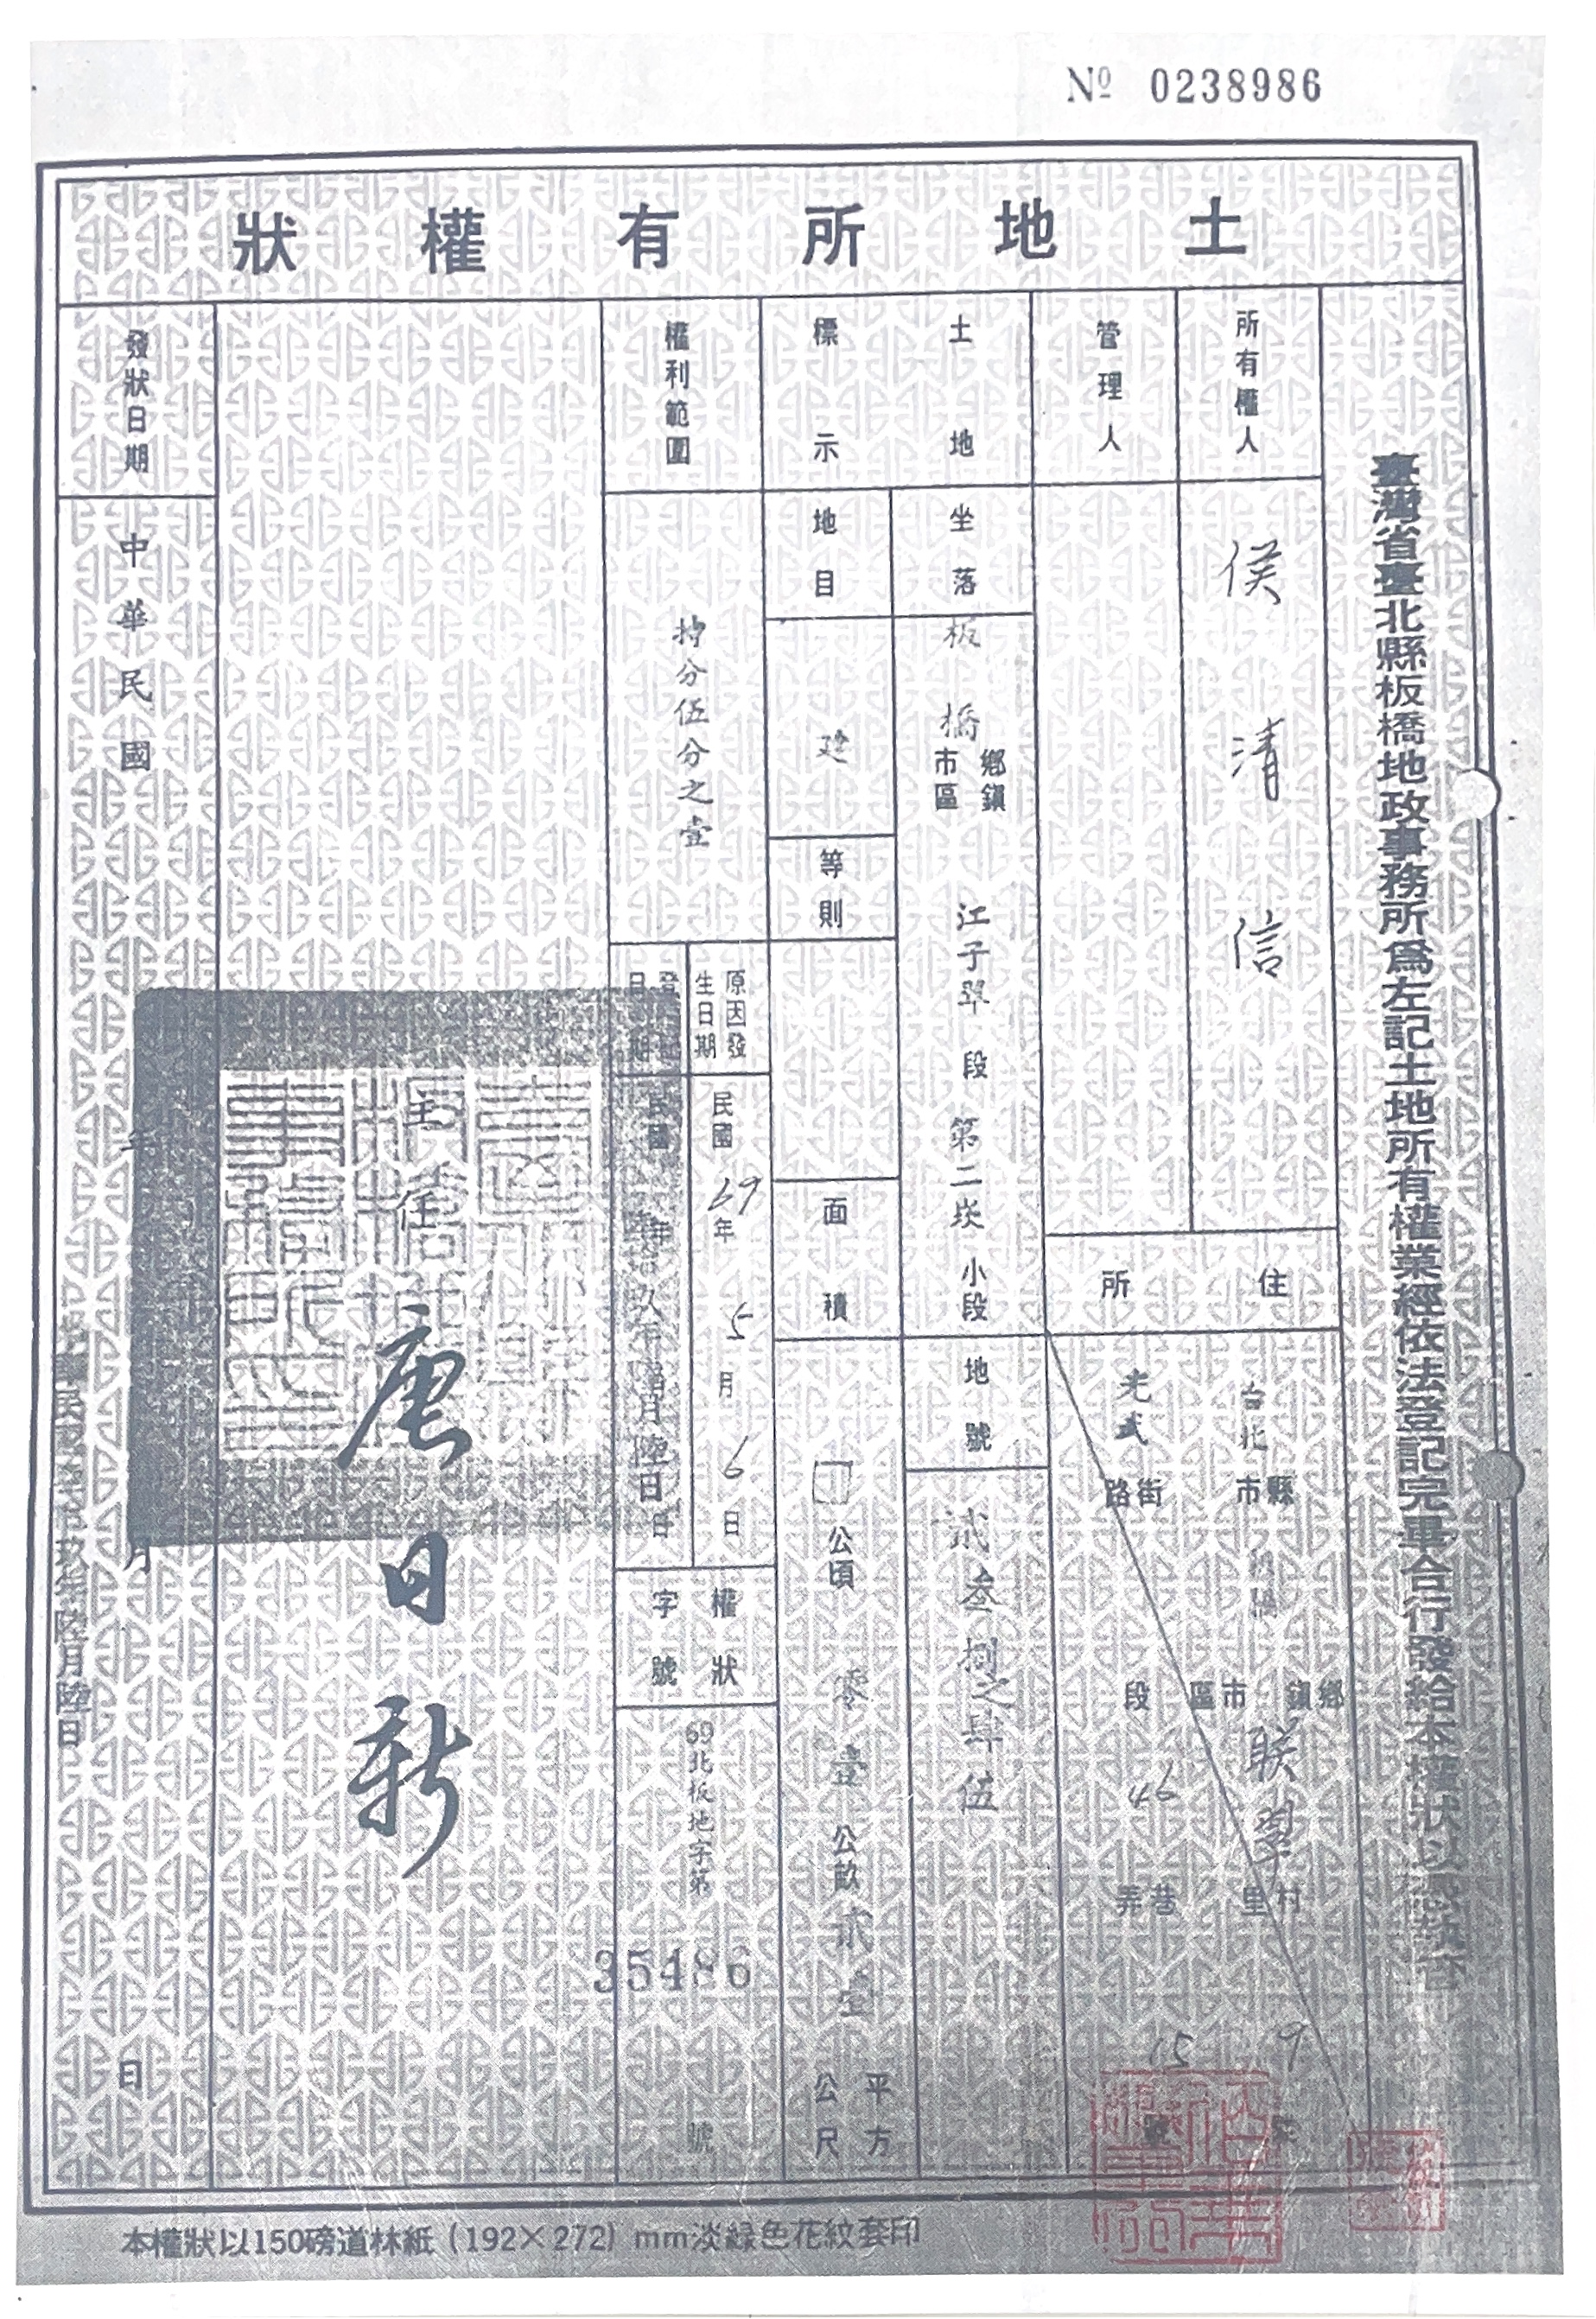 No 0238986
土地所有權狀
臺灣省臺北縣板橋地政事務所為左記土地所有權業經依法登記完畢合行發給本權狀以憑執管
所有權人
侯清信
管理人
住所
台北市縣
鄉鎮市區
聯翠村里
9鄰
光武路街
段
46巷弄
15號
土地標示
坐落
板橋鄉鎮市區
江子翠段第二崁小段
地號
貳叁捌之肆伍
地目
建
等則
面積
公頃零壹公畝貳壹平方公尺
權利範圍
持分伍分之壹
原因發生日期
民國69年5月6日
登記日期
民國
年
陸日
日
權狀字號
69北板地字第
35486
號
主任
唐日新
發狀日期
中華民國
年
月
日
玖年陸月陸日
本權狀以150磅道林紙（192×272）mm淡綠色花紋套印